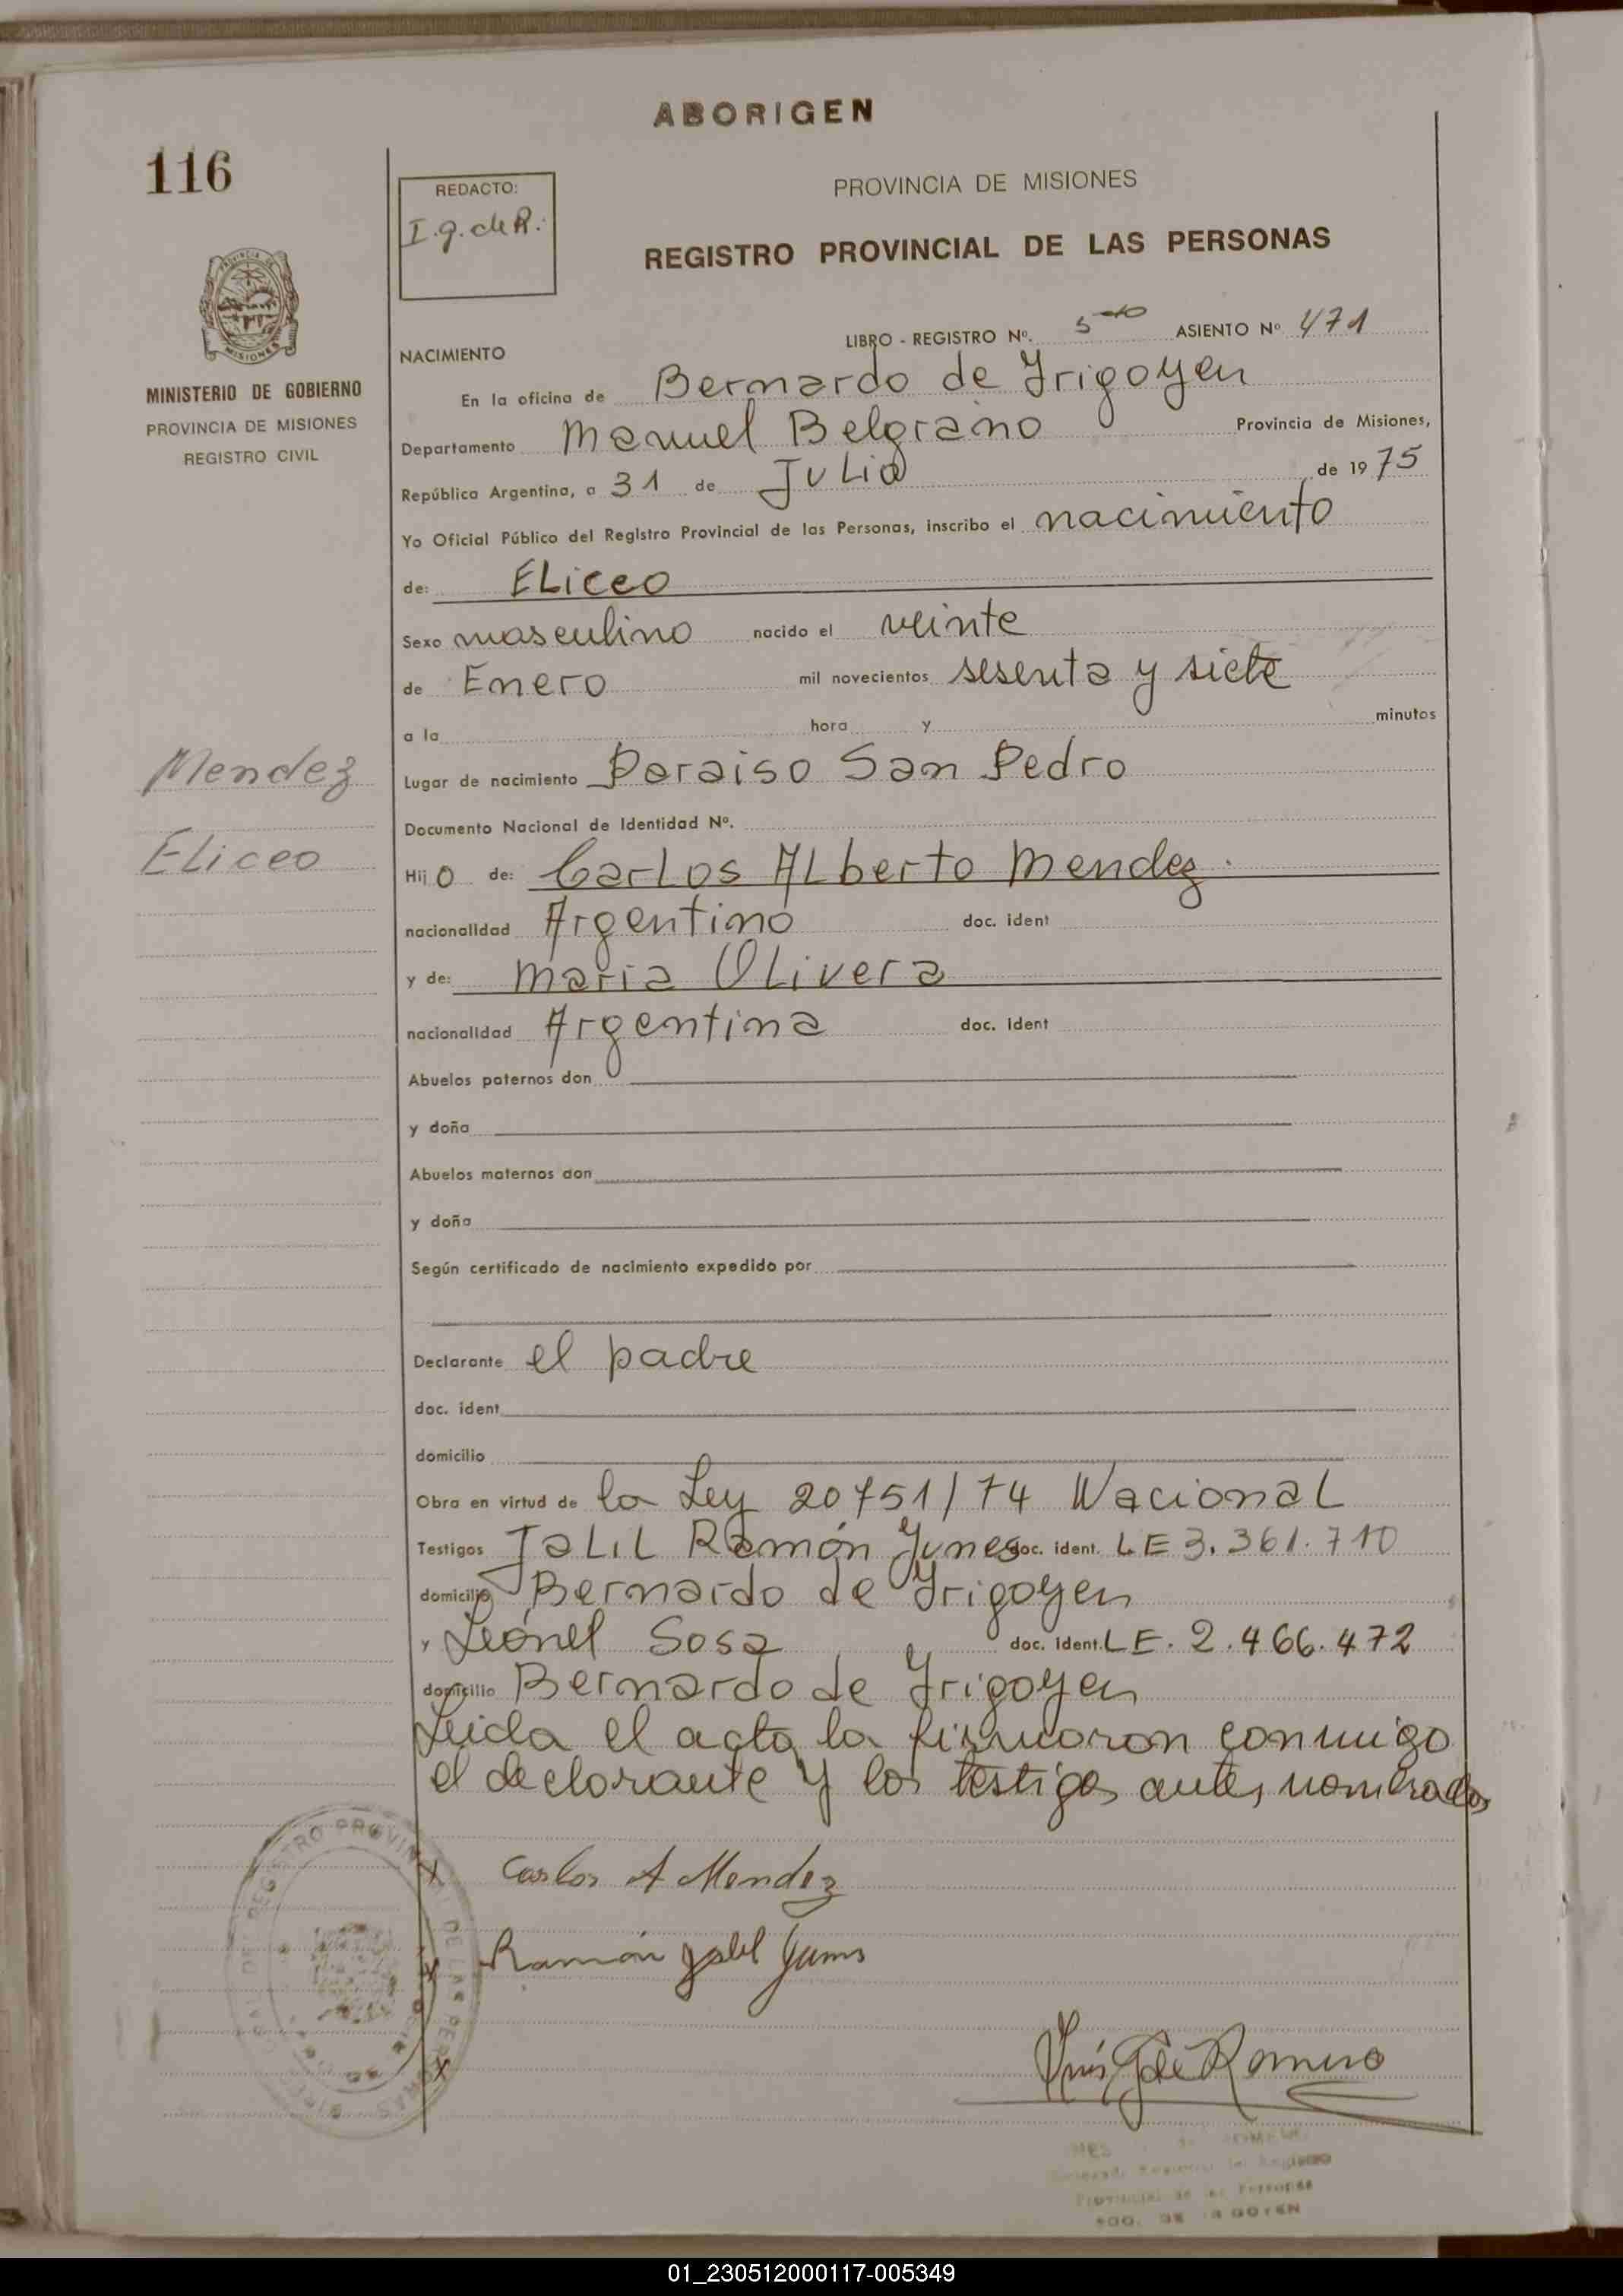 ABORIGEN
116
REDACTO:
I.g. de R.
PROVINCIA DE MISIONES
REGISTRO PROVINCIAL DE LAS PERSONAS
MINISTERIO DE GOBIERNO
PROVINCIA DE MISIONES
REGISTRO CIVIL
LIBRO - REGISTRO Nº. ASIENTO Nº 471
NACIMIENTO
En la oficina de Bernardo de Yrigoyen
Departamento Manuel Belgrano Provincia de Misiones,
República Argentina, a 31 de Julio de 1975
Yo Oficial Público del Registro Provincial de las Personas, inscribo el nacimiento
de: ELiceo
Sexo masculino nacido el veinte
de Enero mil novecientos sesenta y siete
a la hora y minutos
Mendez
Lugar de nacimiento Paraiso San Pedro
Documento Nacional de Identidad Nº.
ELiceo
Hijo de: Carlos ALberto Mendez.
nacionalidad Argentino doc. ident
y de: Maria OLivera
nacionalidad Argentina doc. ident
Abuelos paternos don
y doña
Abuelos maternos don
y doña
Según certificado de nacimiento expedido por
Declarante el padre
doc. ident
domicilio
Obra en virtud de la Ley 20751/74 NacionaL
Testigos JaLiL Ramón Yunes doc. ident. LE 3.361.710
domicilio Bernardo de Yrigoyen
y Leonel Sosa doc. ident. LE. 2.466.472
domicilio Bernardo de Yrigoyen
Leida el acta la firmaron conmigo
el declarante y los testigos antes nombrados
Carlos A Mendez
Ramón Jalil Yunes
Inés G de Romero
01_230512000117-005349